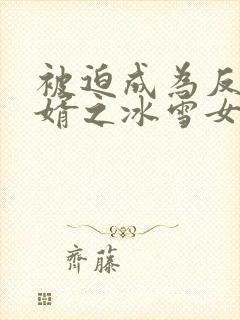 被迫成為反
婿之冰雪女
齊藤